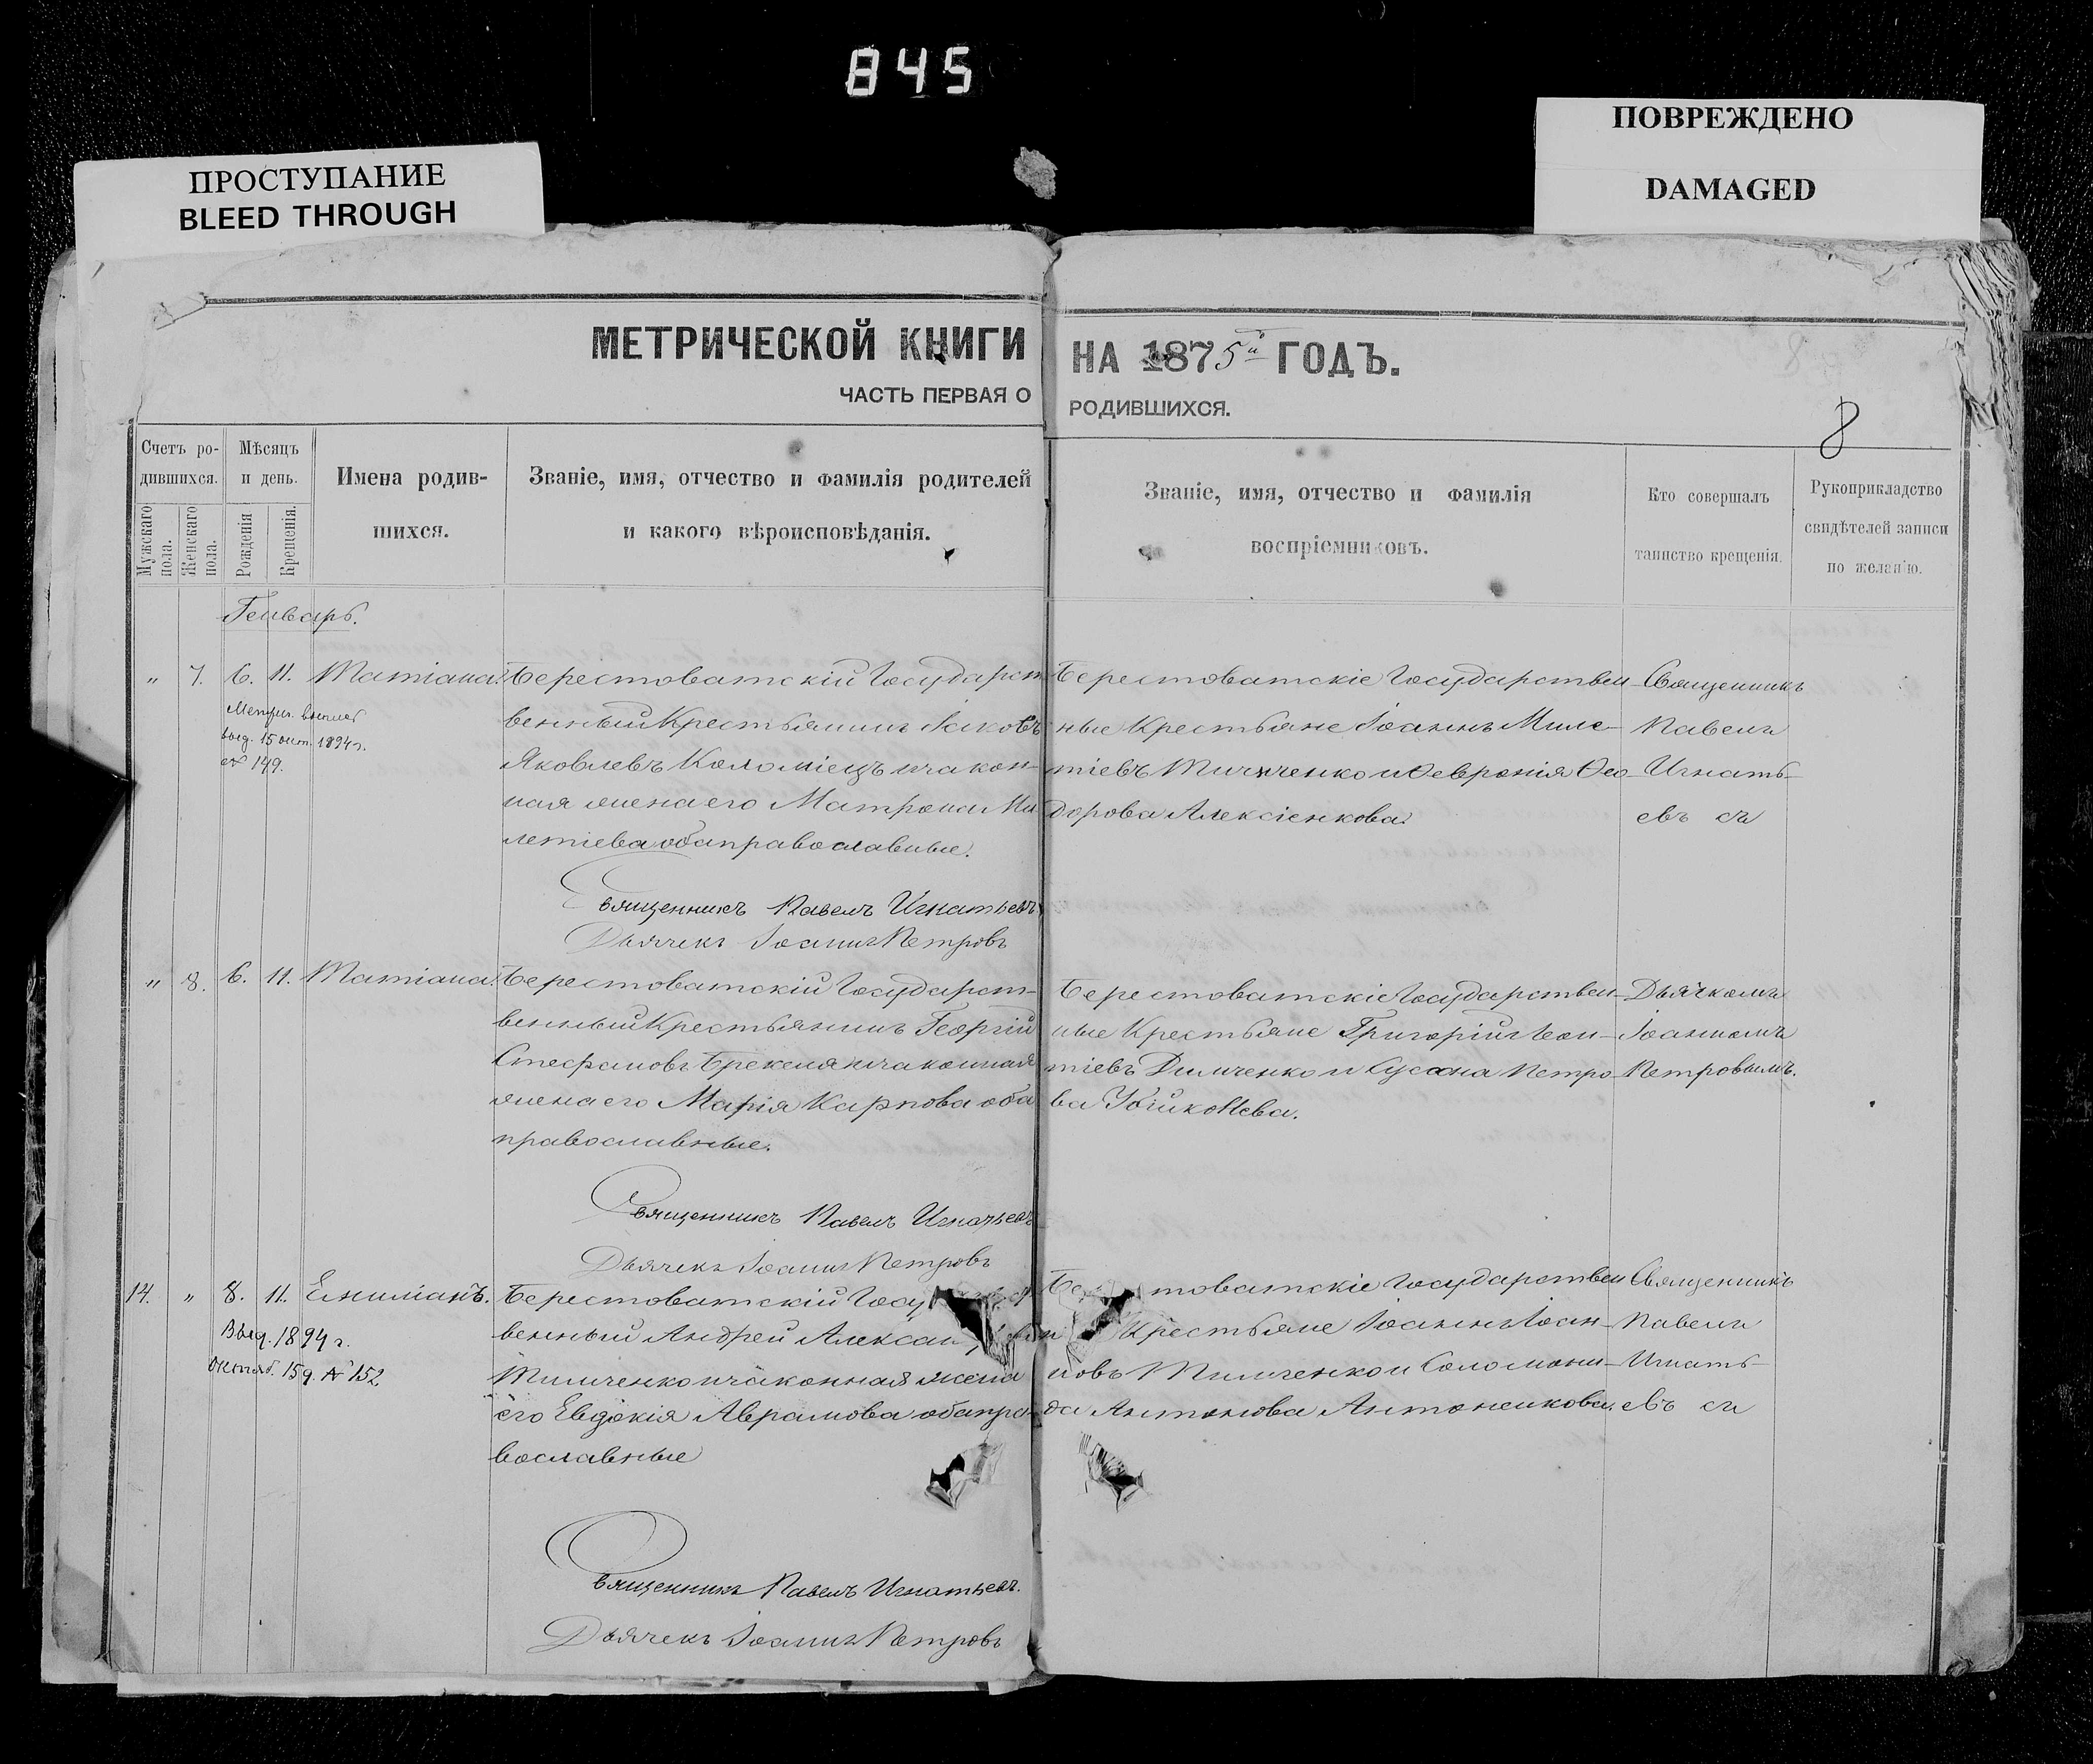 845
ПРОСТУПАНИЕ
BLEED THROUGH
ПОВРЕЖДЕНО
DAMAGED
МЕТРИЧЕСКОЙ КНИГИ НА 1875й ГОДЪ.
ЧАСТЬ ПЕРВАЯ О РОДИВШИХСЯ.
8
Счетъ ро-
дившихся.
Мужскаго пола.
Женскаго пола.
Мѣсяцъ
и день.
Рожденія
Крещенія.
Имена родив-
шихся.
Званіе, имя, отчество и фамилія родителей
и какого вѣроисповѣданія.
Званіе, имя, отчество и фамилія
воспріемниковъ.
Кто совершалъ
таинство крещенія.
Рукоприкладство
свидѣтелей записи
по желанію.
Генварь.
" 7. 6. 11. Татіана.
выд. 15 окт. 1894 г.
№ 149.
Берестоватскій Государст
венный Крестьянинъ Іаковъ
Яковлевъ Коломіецъ и закон-
ная жена его Матрона Ми
летіева оба православные.
Священникъ Павелъ Игнатьевъ
Дьячекъ Іоаннъ Петровъ
Берестоватскіе Государствен-
ные Крестьяне Іоаннъ Миле-
тіевъ и Февронія Ѳео-
дорова Алексіенкова.
Священникъ
Павелъ
Игнать-
евъ съ
" 8. 6. 11. Татіана.
Берестоватскій Государст-
венный Крестьянинъ Георгій
Стефановъ и законная
жена его Марія Карпова оба
православные.
Священникъ Павелъ Игнатьевъ
Дьячекъ Іоаннъ Петровъ
Берестоватскіе Государствен-
ные Крестьяне Григорій Леон-
тіевъ и Сусана Петро-
ва
Дьячкомъ
Іоанномъ
Петровымъ.
14. " 8. 11. Емиліанъ.
Выд. 1894 г.
Октяб. 15 д. № 152.
Берестоватскій Госу
венный Андрей Алексан
Тимченко и законная жена
его Евдокія Аврамова оба пра-
вославные
Священникъ Павелъ Игнатьевъ.
Дьячекъ Іоаннъ Петровъ
Бе товатскіе Государствен
Крестьяне Іоаннъ Іоан-
новъ Тимченко и Соломони-
да Антонова Антоненкова.
Священникъ
Павелъ
Игнать-
евъ съ